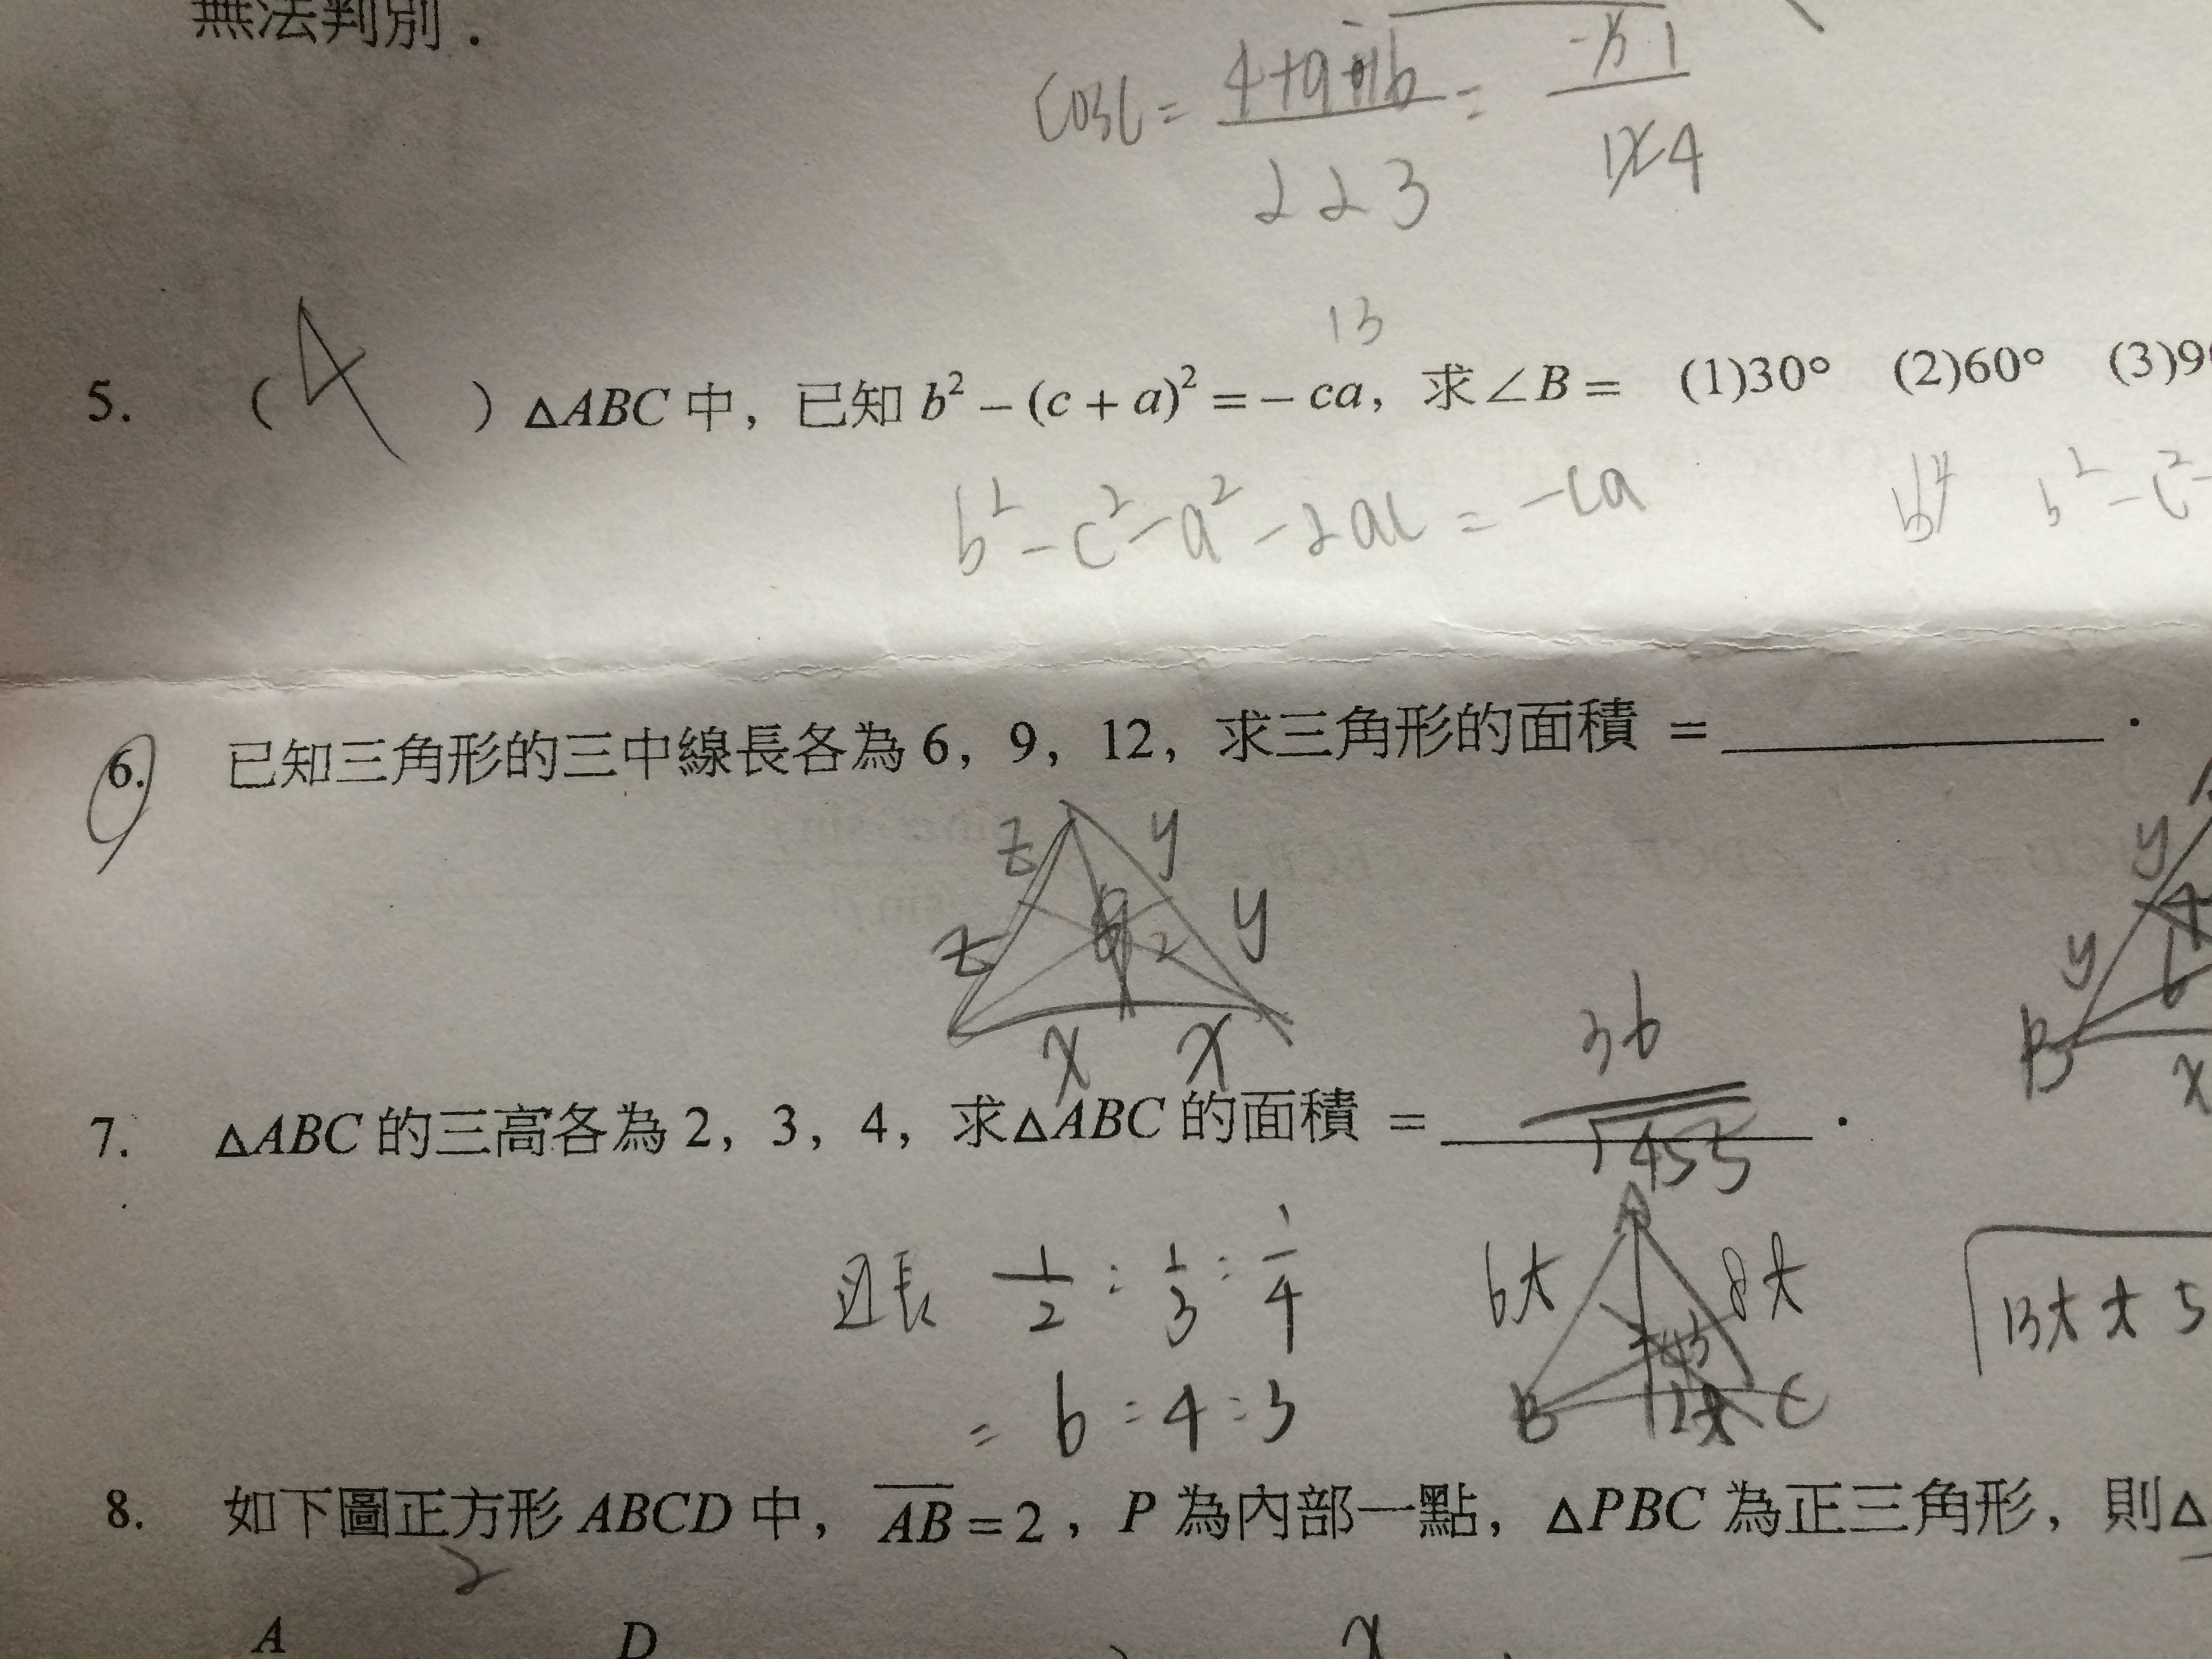 無法判別.
cosC = 4+9-16 / 2 2 3 = / 4
13
5. ( 4 ) △ABC 中，已知 b² − (c + a)² = − ca，求∠B = (1)30° (2)60° (3)9
b² − c² − a² − 2ac = −ca
b² − c² −
6. 已知三角形的三中線長各為 6，9，12，求三角形的面積 = ______.
z y
z y
x x
y
y
B
x
7. △ABC 的三高各為 2，3，4，求△ABC 的面積 = 36/√455.
邊長 1/2 : 1/3 : 1/4
= 6 : 4 : 3
A
6t 8t
B 12t C
13t t 5
8. 如下圖正方形 ABCD 中，AB = 2，P 為內部一點，△PBC 為正三角形，則△
2
A D x